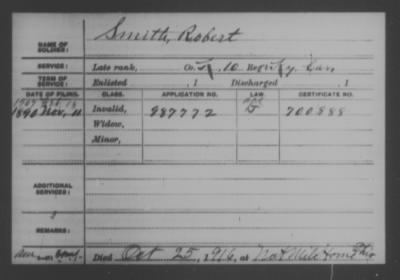 NAME OF SOLDIER: Smith, Robert
SERVICE: Late rank, Co. K, 10 Reg't Ky Cav.
TERM OF SERVICE: Enlisted , 1 Discharged , 1
DATE OF FILING. CLASS. APPLICATION NO. LAW. CERTIFICATE NO.
1907
1890 Nov, 11 Invalid, 987772 700888
Widow,
Minor,
ADDITIONAL SERVICES:
REMARKS:
Died Oct 25, 1916, at Nat Mil Home